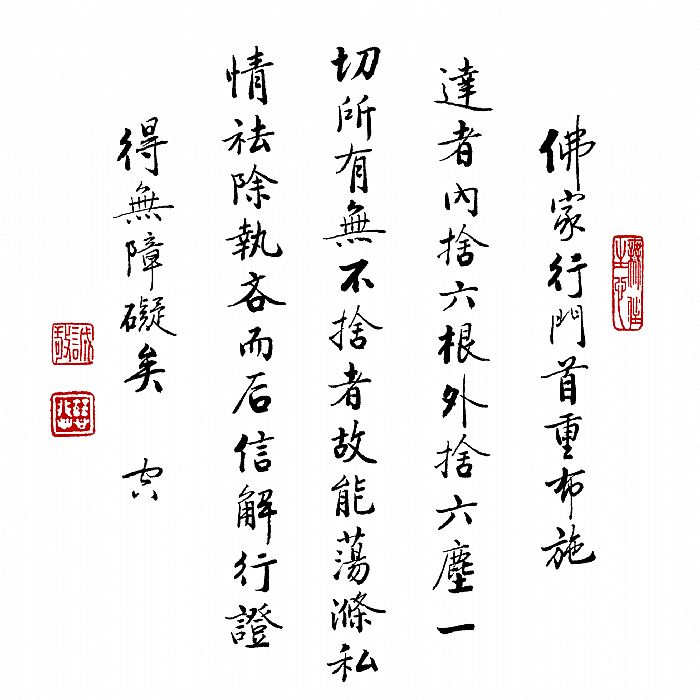 佛家行門首重布施
達者內捨六根外捨六塵一
切所有無不捨者故能蕩滌私
情祛除執吝而后信解行證
得無障礙矣